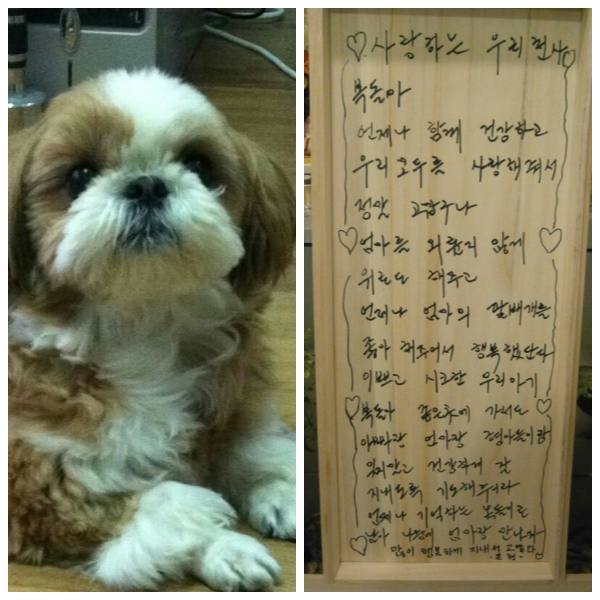 사랑하는 우리천사
복돌아
언제나 함께 건강하고
우리 모두를 사랑해줘서
정말 고맙구나
엄마를 외롭지 않게
위로도 해주고
언제나 엄마의 팔베개를
좋아 해주어서 행복했단다
이쁘고 시크한 우리아기
복돌아 좋은곳에 가서도
아빠랑 엄마랑
잊지말고 건강하게 잘
지내도록 기도해주거라
언제나 기억하는 복돌이로
남아 나중에 엄마랑 만나자
많이 행복하게 지내